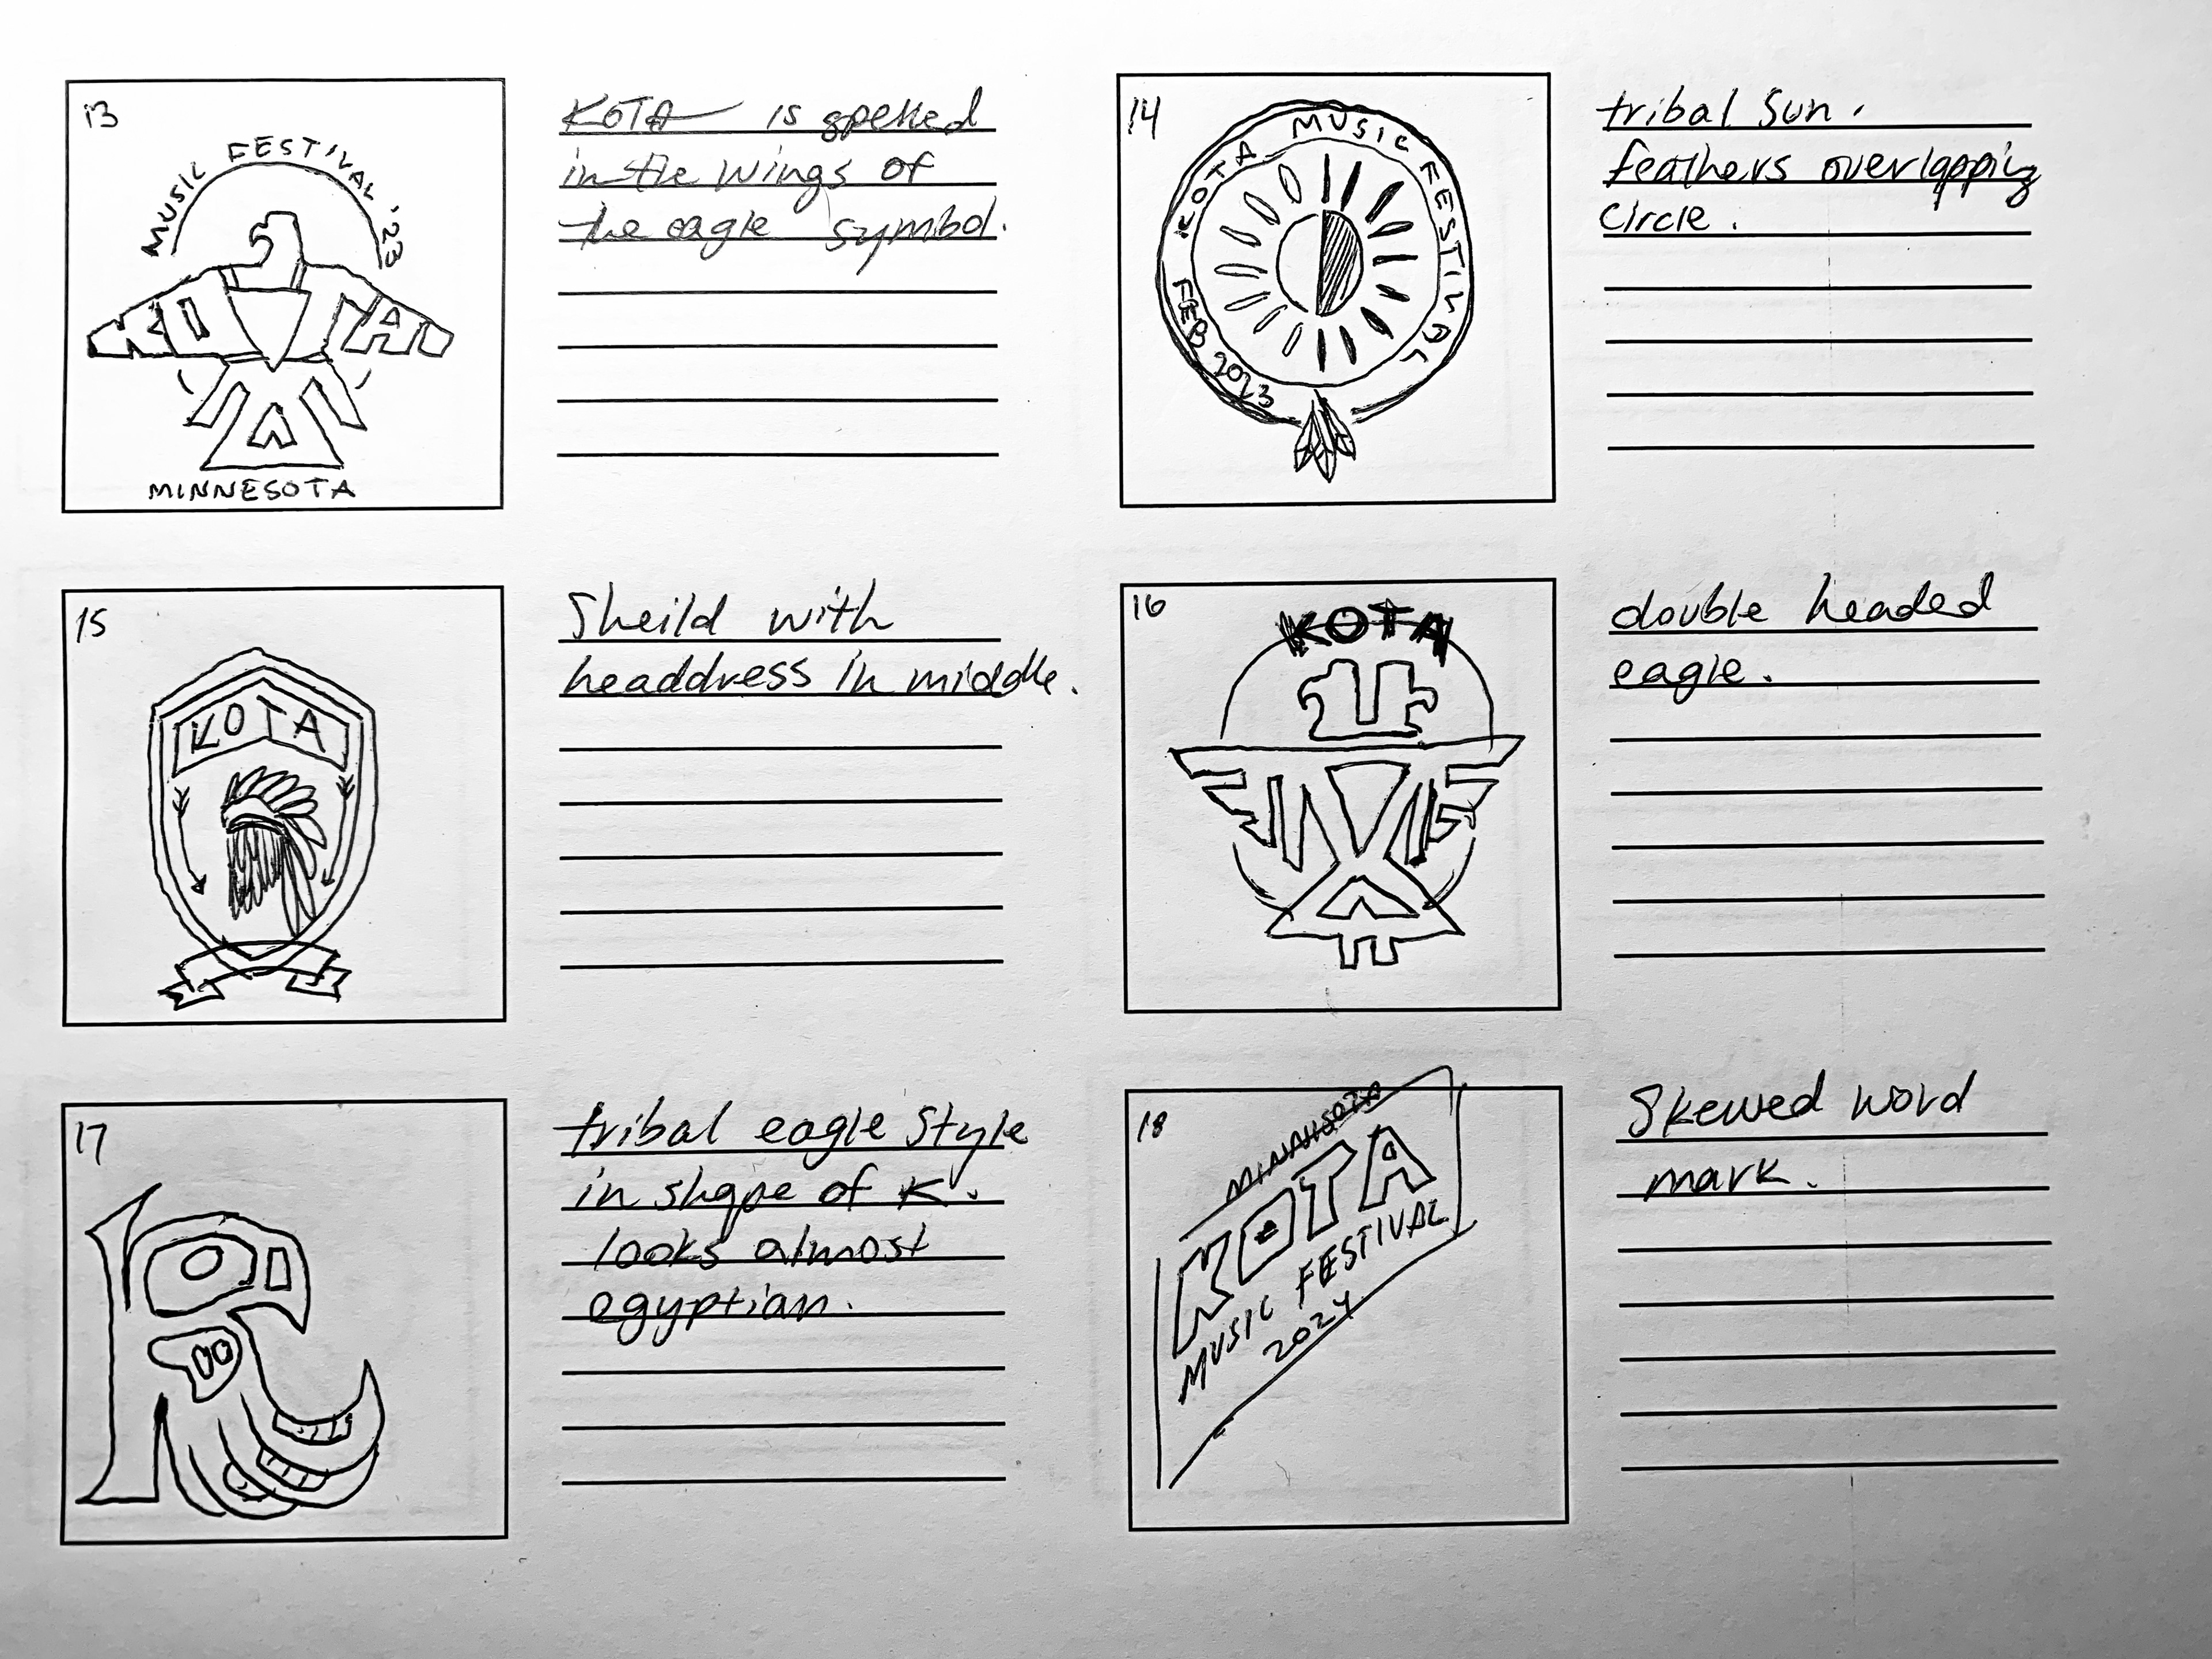 13
MUSIC FESTIVAL '23
KOTA
MINNESOTA
KOTA is spelled
in the wings of
the eagle symbol.
14
KOTA MUSIC FESTIVAL
FEB 2023
tribal sun.
feathers overlapping
circle.
15
KOTA
Sheild with
headdress in middle.
16
KOTA
double headed
eagle.
17
tribal eagle style
in shape of K.
looks almost
egyptian.
18
KOTA
MUSIC FESTIVAL
2024
Skewed word
mark.